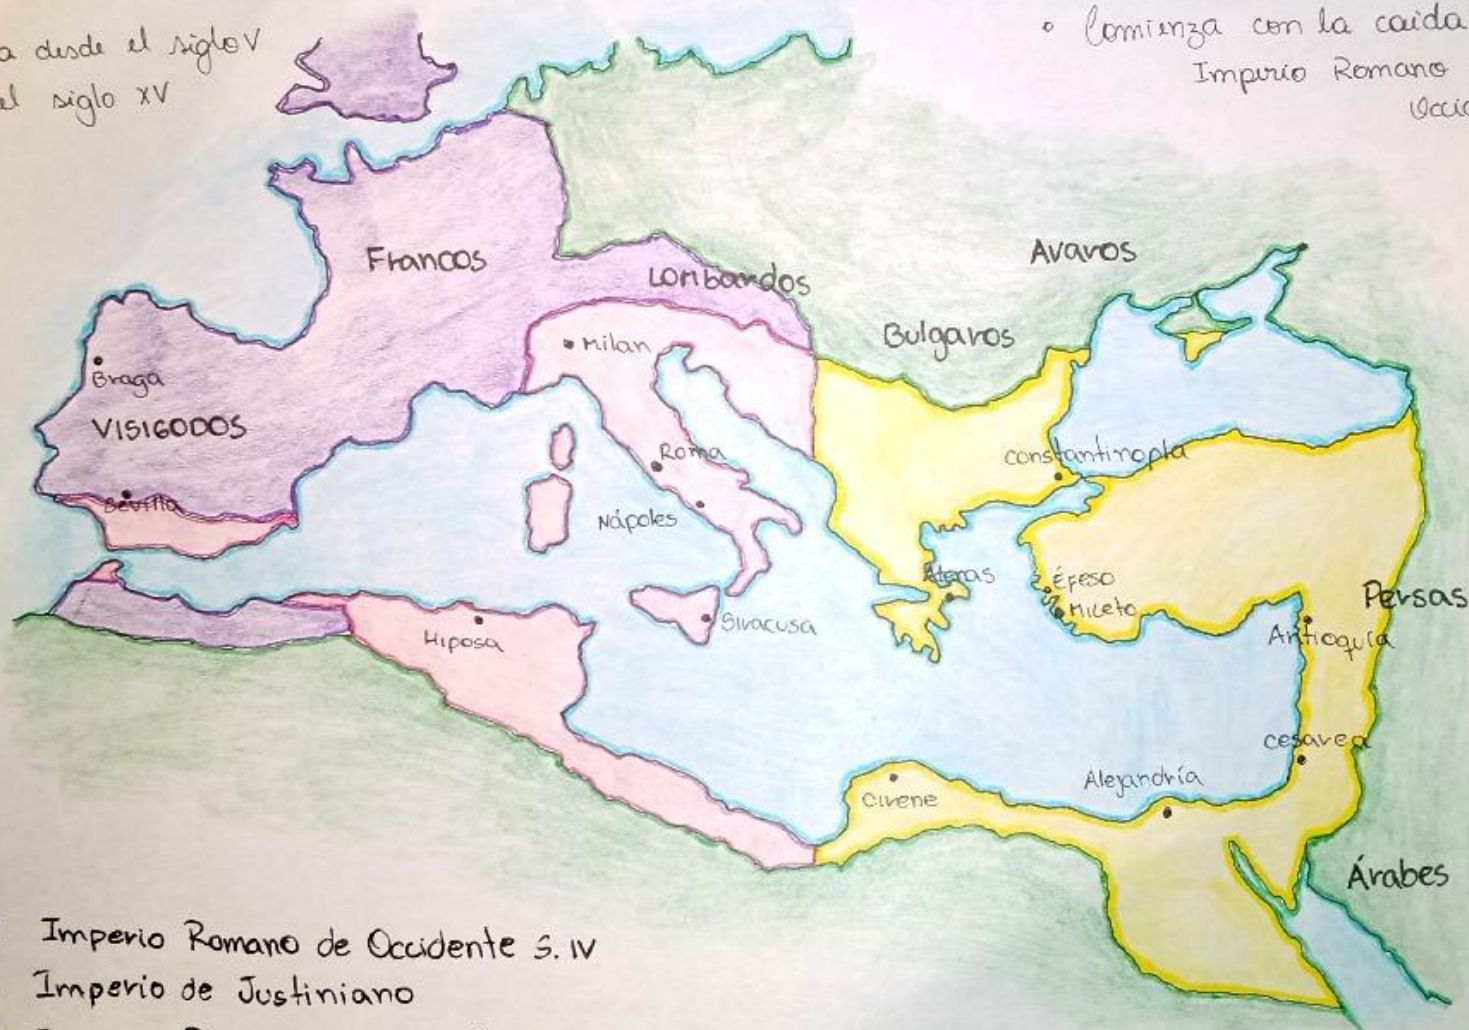 a desde el siglo V
el siglo XV
• Comienza con la caida
Imperio Romano
Occi
Francos
Lombardos
Avaros
Bulgaros
Milan
Braga
VISIGODOS
Roma
Constantinopla
Sevilla
Nápoles
Atenas
Éfeso
Mileto
Persas
Siracusa
Hiposa
Antioquía
Cesarea
Alejandría
Cirene
Árabes
Imperio Romano de Occidente S. IV
Imperio de Justiniano